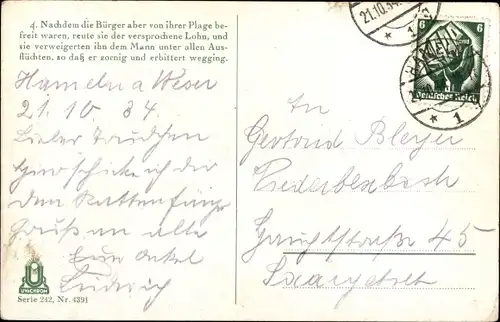 4. Nachdem die Bürger aber von ihrer Plage be-
freit waren, reute sie der versprochene Lohn, und
sie verweigerten ihn dem Mann unter allen Aus-
flüchten, so daß er zornig und erbittert wegging.
Hameln a Weser
21. 10 34
Liebes Trudchen
Hier schicke ich dir
den Rattenfänger
Gruß an alle
Dein Onkel
Ludwig
UVACHROM
Serie 242, Nr. 4391
21.10.34
HAMELN
1
6 6
Deutsches Reich
An
Gertrud Bleyer
Niederbexbach
Hauptstraße 45
Saargebiet